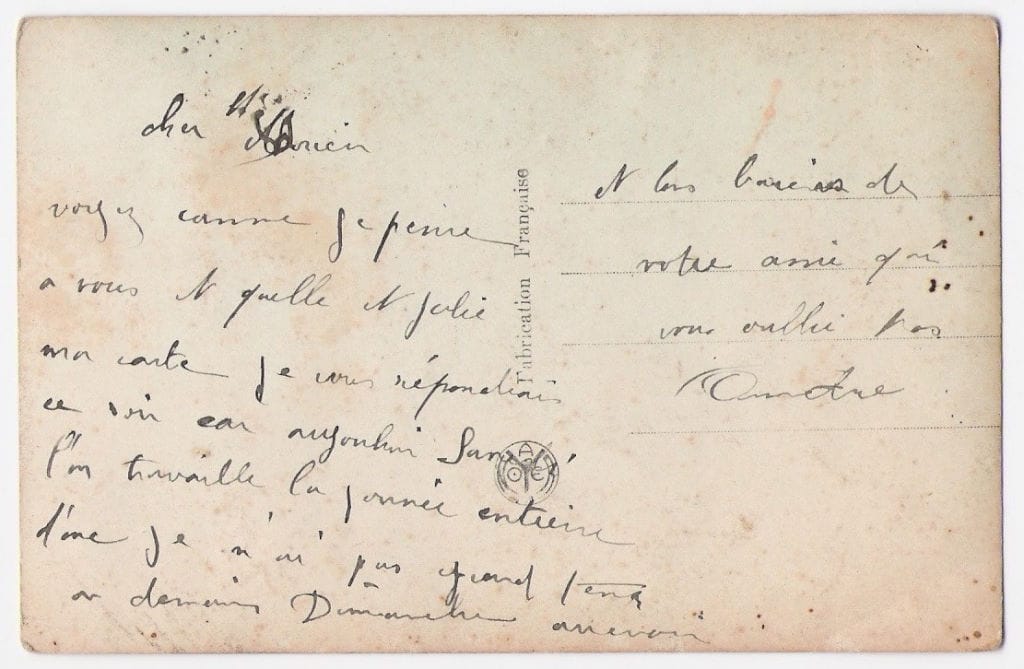 cher
voyez comme je pense
a vous et quelle et jolie
ma carte je vous répondrais
ce soir car aujoudui Samedi
l'on travaille la journée entieire
d'one je n'ai pas grand tems
a demains Dimanche aurevoir
Fabrication Française
et bons baisers de
votre amie qui
vous oublie pas